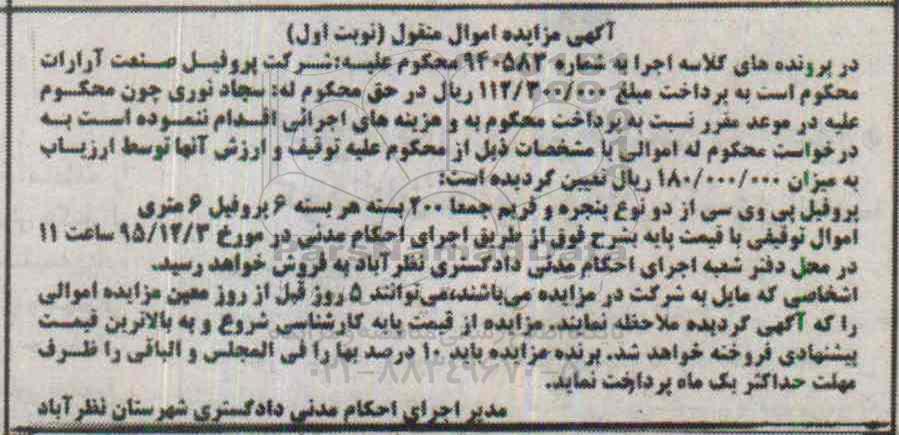 آگهی مزایده اموال منقول (نوبت اول)
در پرونده های کلاسه اجرا به شماره 940583 محکوم علیه: شرکت پروفیل صنعت آرارات
محکوم است به پرداخت مبلغ 112/300/000 ریال در حق محکوم له: سجاد نوری چون محکوم
علیه در موعد مقرر نسبت به پرداخت محکوم به و هزینه های اجرائی اقدام ننموده است به
درخواست محکوم له اموالی با مشخصات ذیل از محکوم علیه توقیف و ارزش آنها توسط ارزیاب
به میزان 180/000/000 ریال تعیین گردیده است:
پروفیل پی وی سی از دو نوع پنجره و فریم جمعا 200 بسته هر بسته 6 پروفیل 6 متری
اموال توقیفی با قیمت پایه بشرح فوق از طریق اجرای احکام مدنی در مورخ 95/12/3 ساعت 11
در محل دفتر شعبه اجرای احکام مدنی دادگستری نظرآباد به فروش خواهد رسید.
اشخاصی که مایل به شرکت در مزایده می‌باشند،می‌توانند 5 روز قبل از روز معین مزایده اموالی
را که آگهی گردیده ملاحظه نمایند. مزایده از قیمت پایه کارشناسی شروع و به بالاترین قیمت
پیشنهادی فروخته خواهد شد. برنده مزایده باید 10 درصد بها را فی المجلس و الباقی را ظرف
مهلت حداکثر یک ماه پرداخت نماید.
مدیر اجرای احکام مدنی دادگستری شهرستان نظرآباد
ParsNamadData